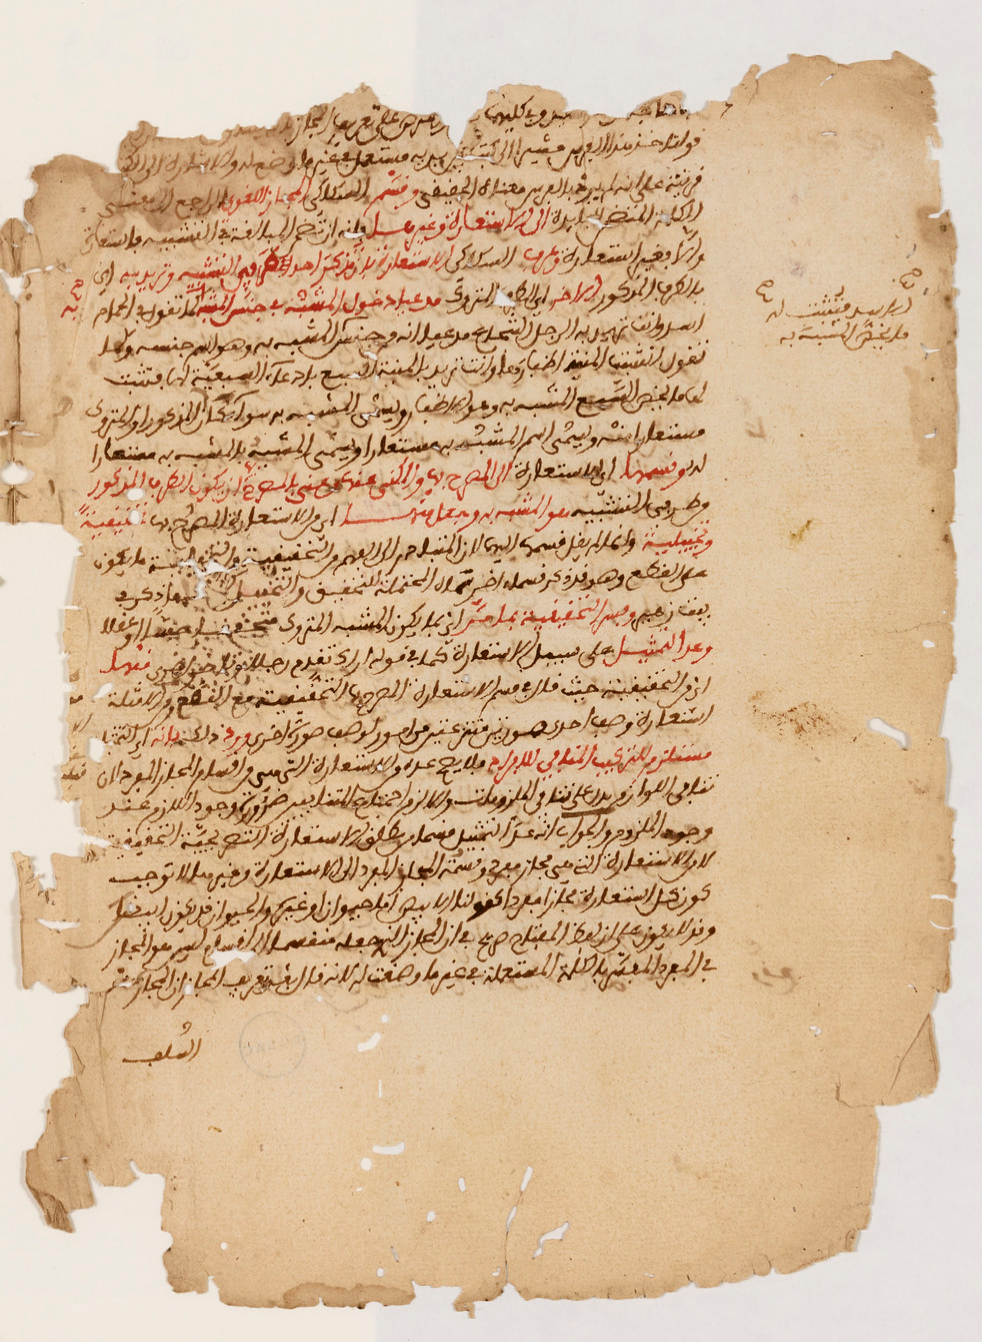 على تعريف المجاز
قرينة على انه لم يرد بالفرس معناه الحقيقى وقسم السكاكى المجاز اللغوى الراجع الى معنى
الكلمة المتضمن للفايدة الى الاستعارة وغيرها بانه ان تضمن المبالغة فى التشبيه فاستعارة
والا فغير استعارة وعرف السكاكى الاستعارة بان تذكر احد طرفى التشبيه وتريد به اى
بالطرف المذكور الاخر اى الطرف المتروك مدعيا دخول المشبه فى جنس المشبه به كما تقول فى الحمام
اسد وانت تريد به الرجل الشجاع مدعيا انه من جنس المشبه به وهو اسم جنسه وكما
تقول انشبت المنية اظفارها وانت تريد بالمنية السبع بادعاء السبعية لها فتثبت
لها ما يخص السبع المشبه به وهو الاظفار ويسمى المشبه به سواء كان المذكور او المتروك
مستعارا منه ويسمى اسم المشبه به مستعارا ويسمى المشبه بالمشبه به مستعارا
له وقسمها اى الاستعارة الى المصرح بها والمكنى عنها وعنى بالمصرح بها ان يكون الطرف المذكور
من طرفى التشبيه هو المشبه به وجعل منها اى من الاستعارة المصرح بها تحقيقية
وتخييلية وانما لم يقل قسمها اليهما لان المتبادر الى الفهم من التحقيقية والتخييلية ما يكون
على القطع وهو قد ذكر قسما اخر سماه المحتملة للتحقيق والتخييل كما ذكر فى
بيت زهير وفسر التحقيقية بما مر اى بما يكون المشبه المتروك متحققا حسا او عقلا
وعد التمثيل على سبيل الاستعارة كما فى قولك اراك تقدم رجلا وتؤخر اخرى منها
اى من التحقيقية حيث قال فى قسم الاستعارة المصرح بها التحقيقية مع القطع ومن الامثلة
استعارة وصف احدى صورتين منتزعتين من امور لوصف صورة اخرى ورد ذلك بانه اى التمثيل
مستلزم للتركيب المنافى للافراد فلا يصح عده من الاستعارة التى هى من اقسام المجاز المفرد لان
تنافى اللوازم يدل على تنافى الملزومات والا لزم اجتماع المتنافيين ضرورة وجود اللازم عند
وجود الملزوم والجواب انه عد التمثيل قسما من مطلق الاستعارة التصريحية التحقيقية
لا من الاستعارة التى هى مجاز مفرد وقسمة المجاز المفرد الى الاستعارة وغيرها لا توجب
كون كل استعارة مجازا مفردا كقولنا الابيض اما حيوان او غيره والحيوان قد يكون ابيض
وقد لا يكون على ان لفظ المفتاح صريح فى ان المجاز الذى جعله منقسما الى اقسام ليس هو المجاز
فى المفرد المفسر بالكلمة المستعملة فى غير ما وضعت له لانه قال بعد تعريف المجاز ان المجاز عند
السلف